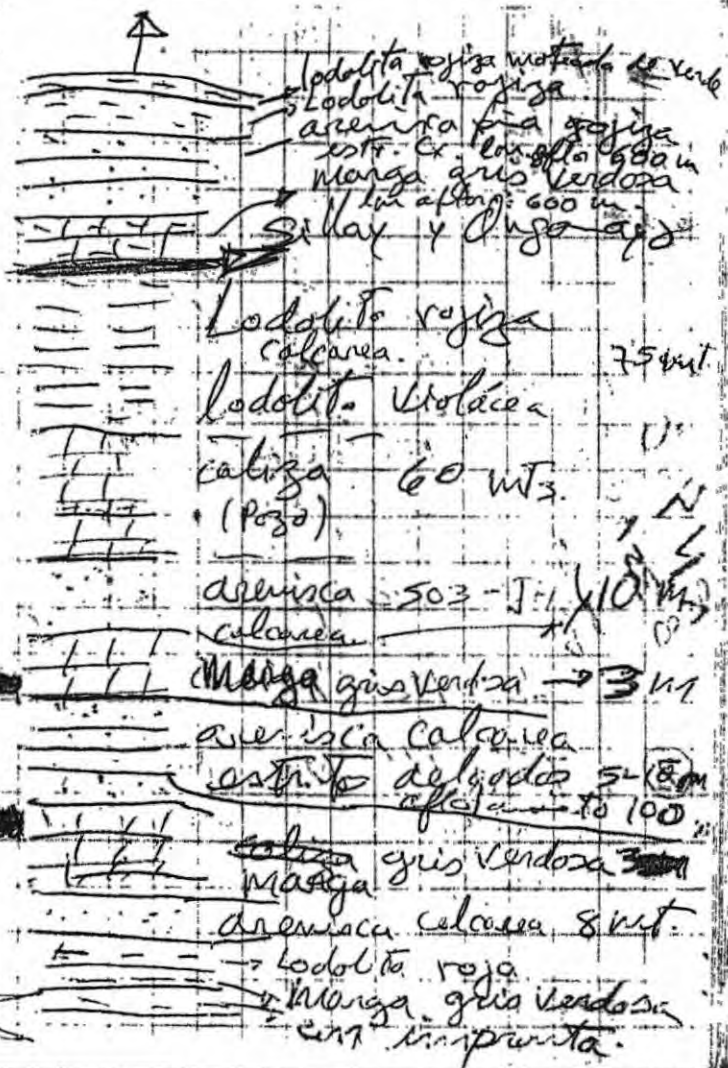 lodolita rojiza moteada de verde
Lodolita rojiza
arenisca fina rojiza
estr. Cx. 600 m
Marga gris verdosa
600 m.
Sillay y
Lodolita rojiza
calcarea. 75 mt.
lodolita violácea
caliza 60 mts.
(Pozo)
arenisca 503-J-1 10 m
calcarea.
Marga gris verdosa → 3 m
arenisca calcarea
estrato delgados 5-10 cm
to 100
caliza gris verdosa 3 m
Marga
arenisca calcarea 8 mt.
→ Lodolita roja
Marga gris verdosa
con impronta.